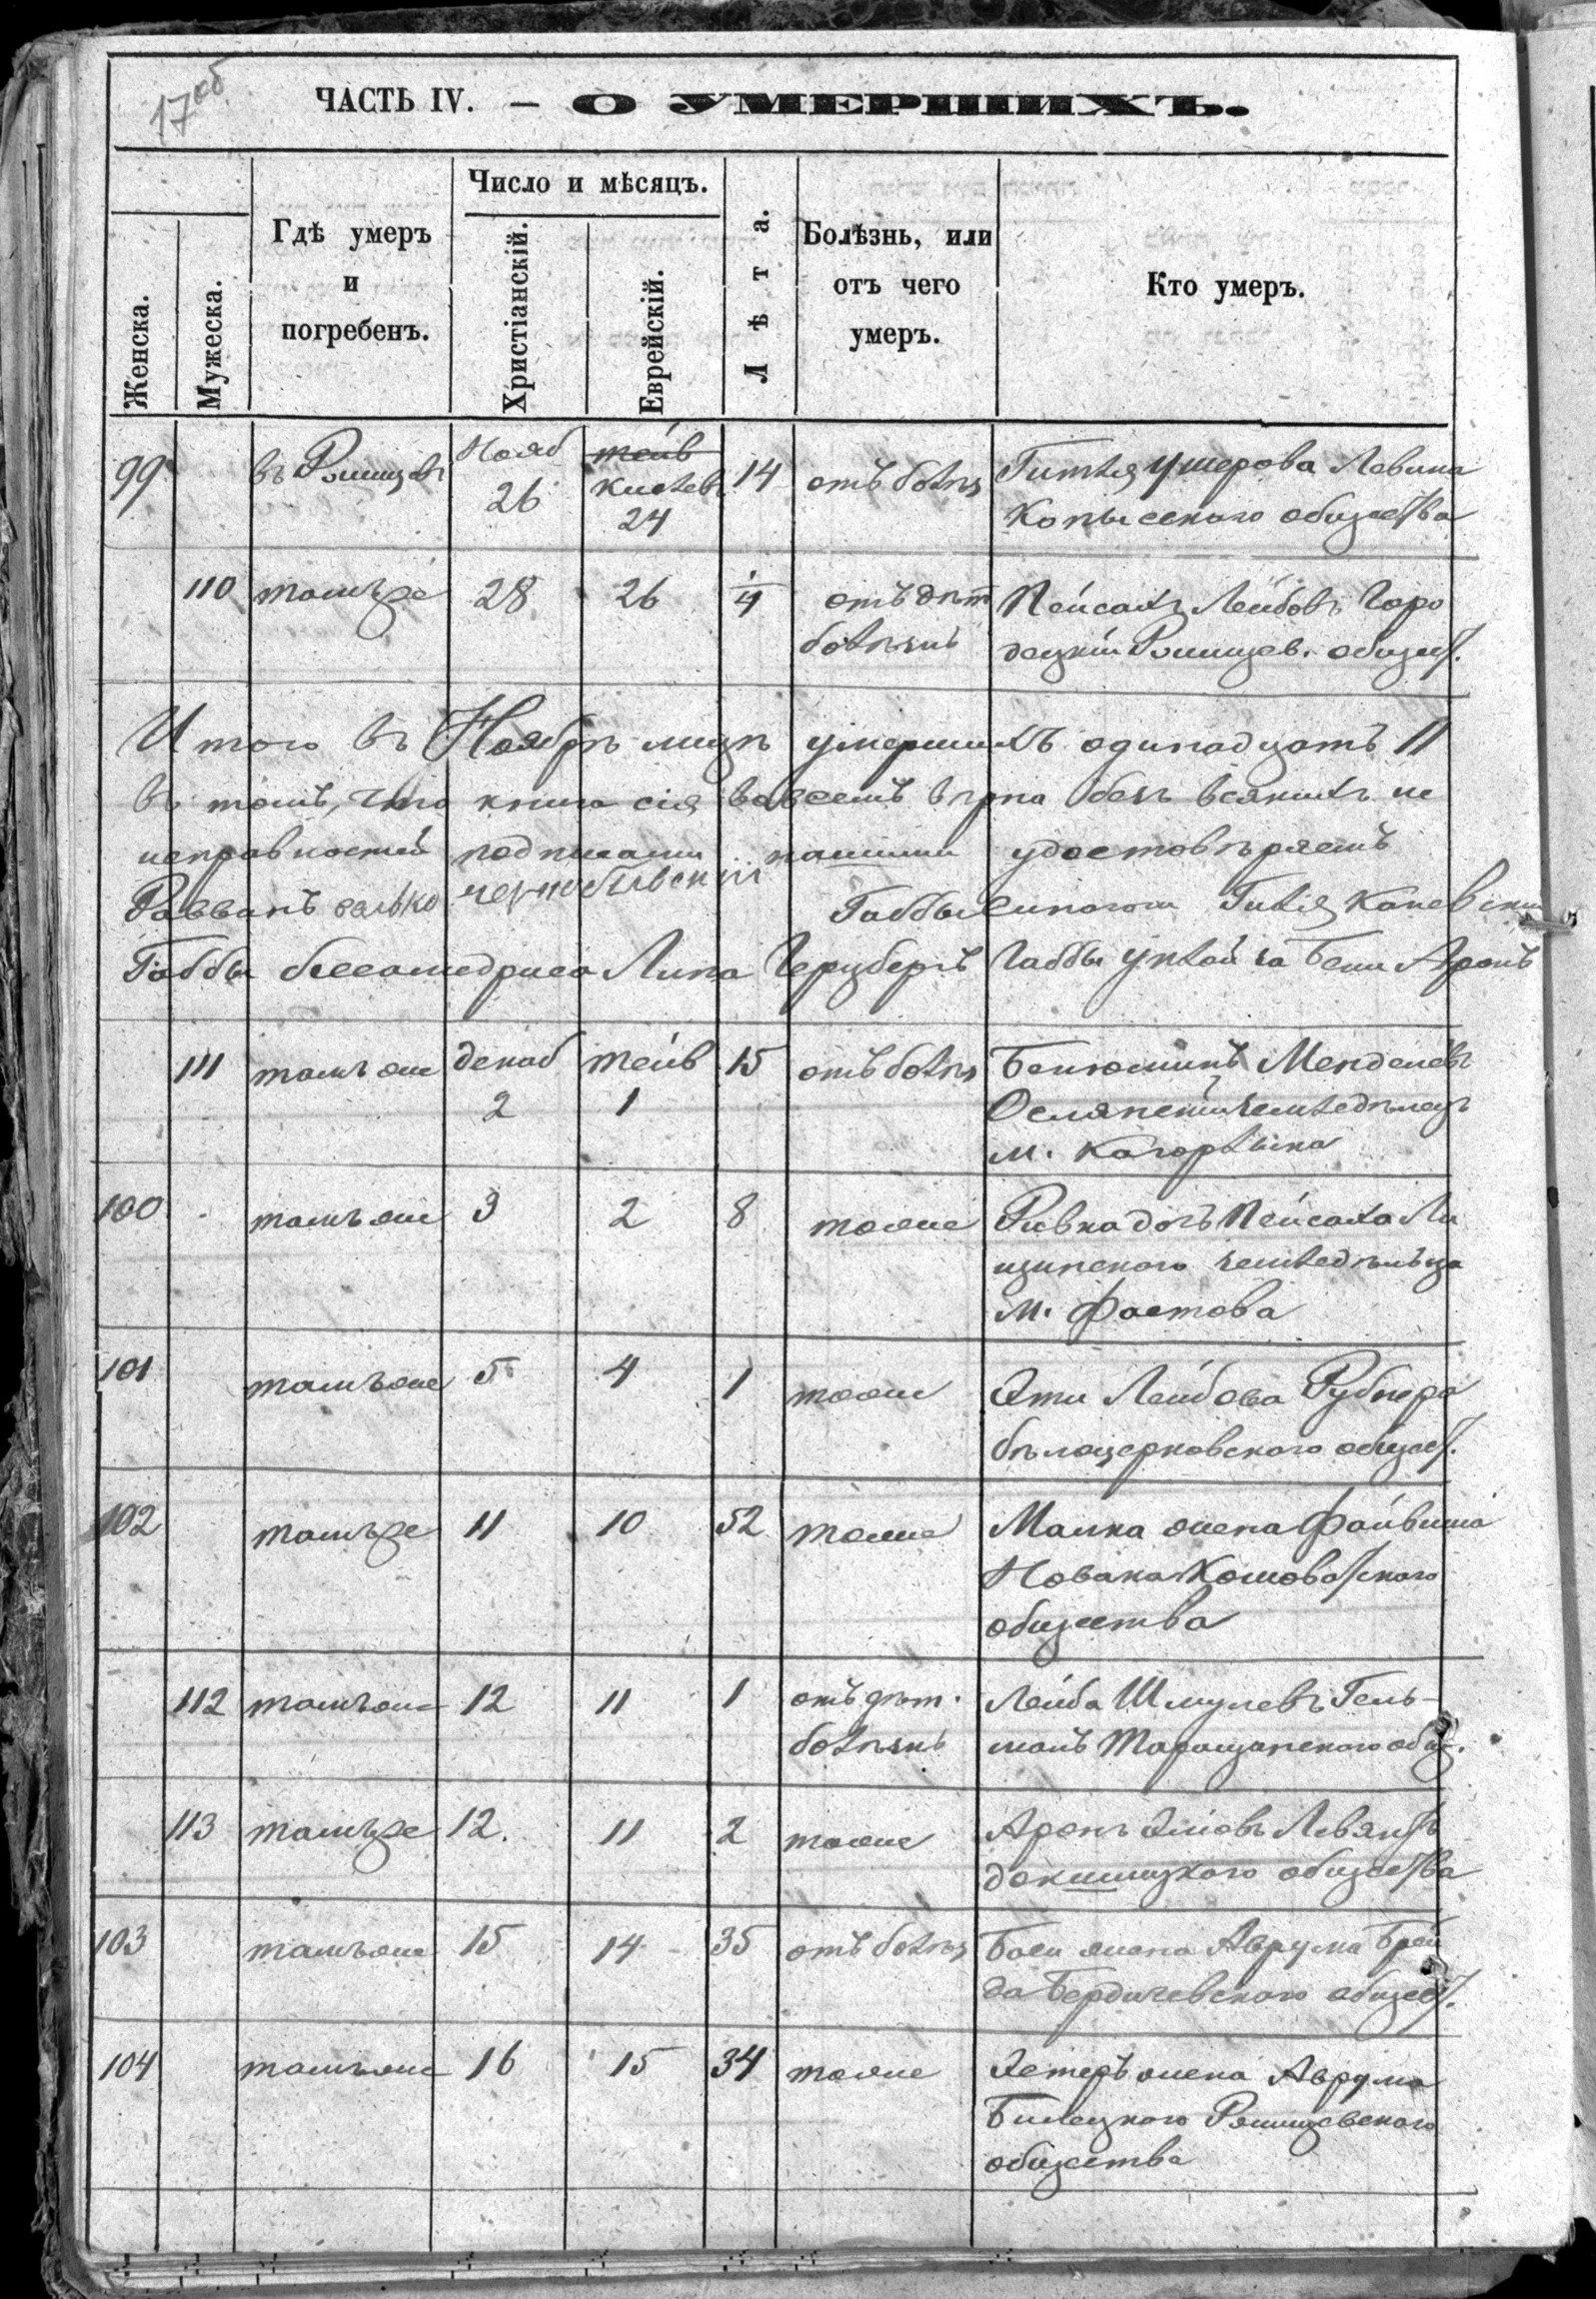 17 об
ЧАСТЬ IV. — О УМЕРШИХЪ.
Женска.
Мужеска.
Гдѣ умеръ и погребенъ.
Число и мѣсяцъ.
Христіанскій.
Еврейскій.
Лѣта.
Болѣзнь, или отъ чего умеръ.
Кто умеръ.
99 въ Ржищевѣ Нояб 26 теив кислевъ 24 14 отъ болѣз Гитля Ушерова Левина
Копысского общества
110 тамъже 28 26 1/4 отъ дѣт Пейсахъ Лейбовъ Горо
болѣзнь децкій Ржищев. общест.
Итого въ Ноябрѣ мцѣ умершихъ одинадцать 11
въ томъ, что книга сія вовсемъ вѣрна безъ всякихъ не
исправностей подписами нашими удостовѣряемъ
Раввинъ Чернобыльскій Габбы синагоги Каневскій
Габбы бесамедриса Липа Герцбергъ Габбы Аронъ
111 тамъ же декаб 2 теив 1 15 отъ болѣз Бенюминъ Менделевъ
земледѣлецъ
м. Кагорлыка
100 тамъ же 3 2 8 тоже Ривка дочь Пейсаха Ли
щинского земледѣльца
м. Фастова
101 тамъ же 5 4 1 тоже Эти Лейбова Рубнера
бѣлоцерковского общест.
102 тамъже 11 10 52 тоже Малка жена Файвиша
Новака Кошоватского
общества
112 тамъ же 12 11 1 отъ дѣт. Лейба Шмулевъ Гель-
болѣзнь манъ Таращанского общ.
113 тамъже 12. 11 2 тоже Аронъ Левянтъ
докшицкого общества
103 тамъ же 15 14 35 отъ болѣз Баси жена Аврума
Бердичевского общест.
104 тамъ же 16 15 34 тоже Эстеръ жена Аврума
Билецкого Ржищевского
общества